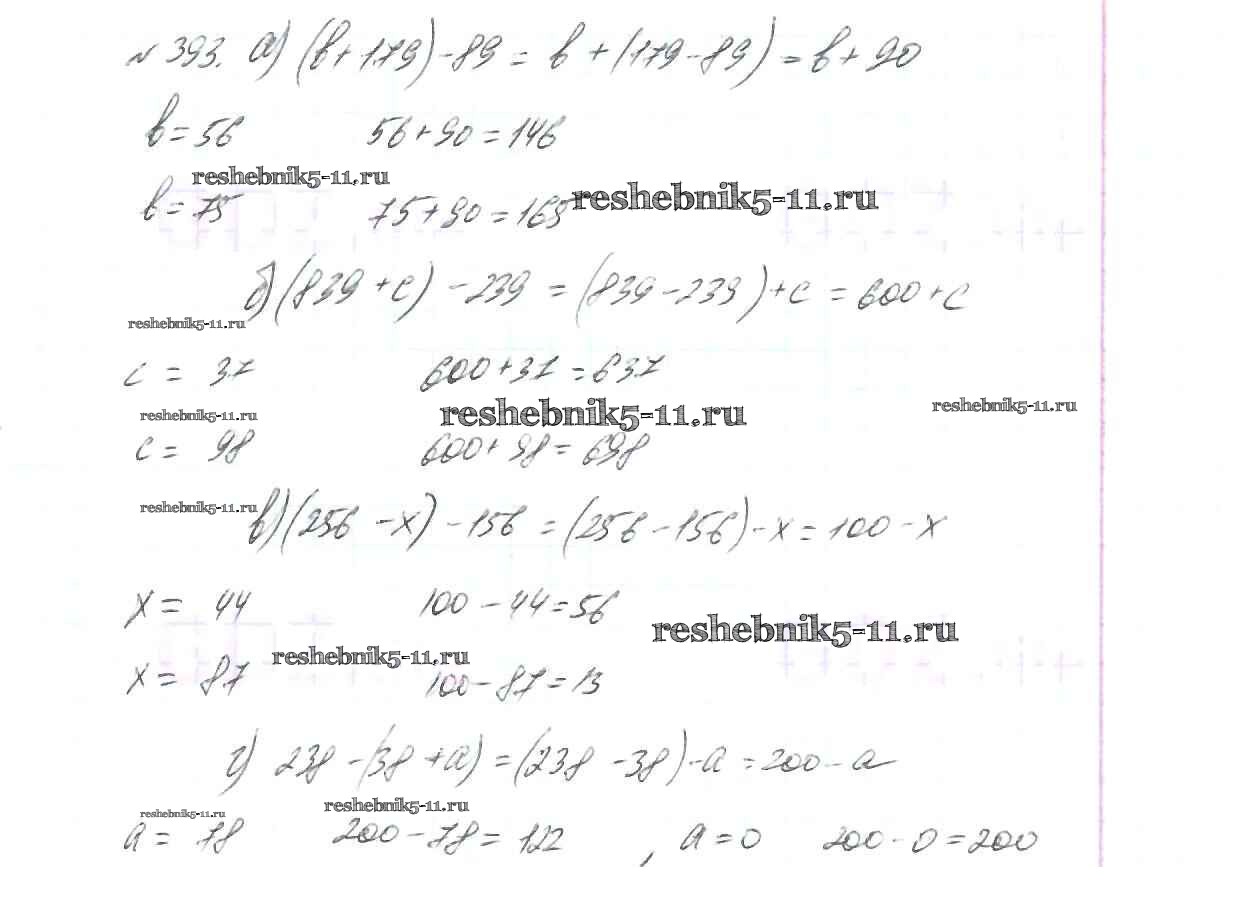 № 393. а) (в + 179) - 89 = в + (179 - 89) = в + 90
в = 56 56 + 90 = 146
reshebnik5-11.ru
reshebnik5-11.ru
в = 75 75 + 90 = 165
б) (839 + с) - 239 = (839 - 239) + с = 600 + с
reshebnik5-11.ru
с = 37 600 + 37 = 637
reshebnik5-11.ru reshebnik5-11.ru reshebnik5-11.ru
с = 98 600 + 98 = 698
reshebnik5-11.ru
в) (256 - х) - 156 = (256 - 156) - х = 100 - х
х = 44 100 - 44 = 56
reshebnik5-11.ru
reshebnik5-11.ru
х = 87 100 - 87 = 13
г) 238 - (38 + а) = (238 - 38) - а = 200 - а
reshebnik5-11.ru reshebnik5-11.ru
а = 78 200 - 78 = 122 , а = 0 200 - 0 = 200